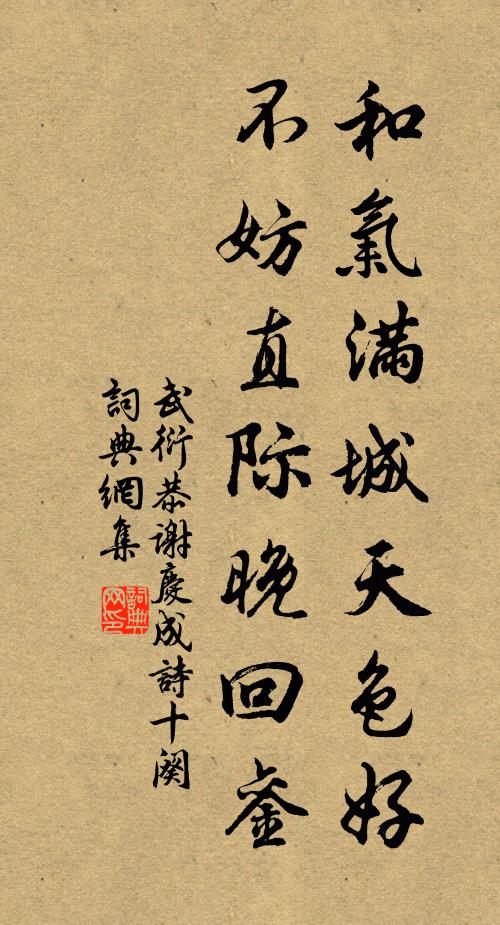 和氣滿城天色好
不妨直际晚回銮
武衍恭謝慶成詩十闋
詞典網集
詞典
网印